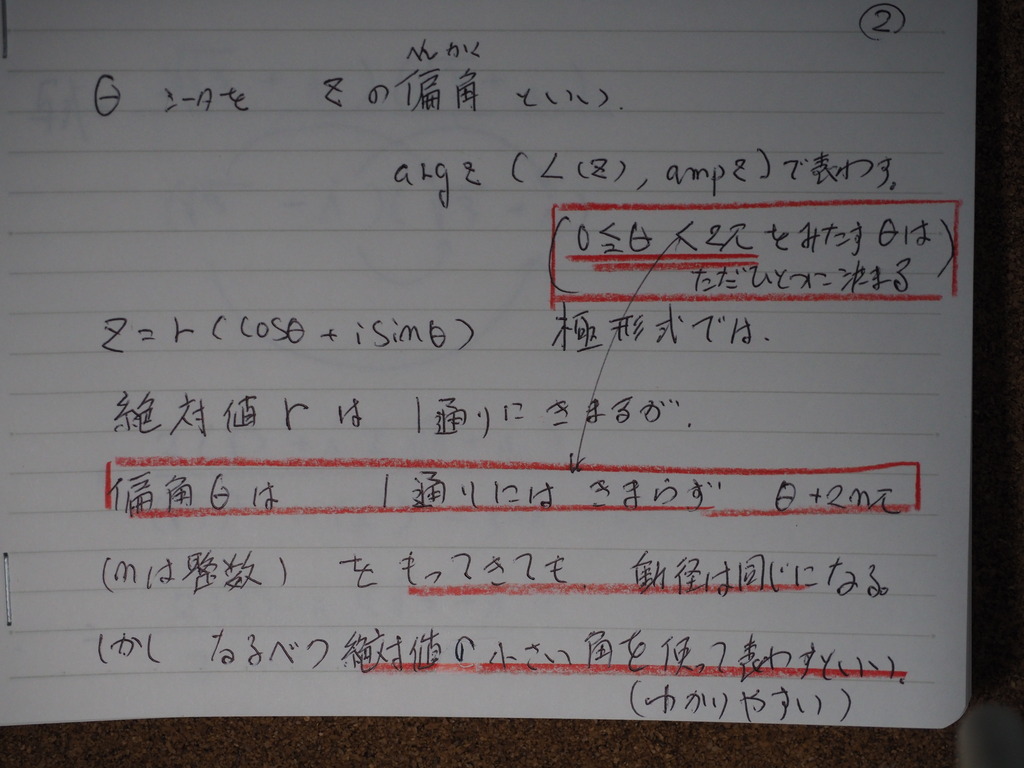 ②
へんかく
θ シータを zの偏角といい.
arg z (∠(z), amp z)で表わす。
(0≦θ<2πをみたすθは
ただひとつに決まる)
z=r(cosθ+isinθ) 極形式では.
絶対値rは 1通りにきまるが.
偏角θは 1通りにはきまらず θ+2nπ
(nは整数) をもってきても. 動径は同じになる。
しかし なるべつ絶対値の小さい角を使って表わすといい.
(わかりやすい)